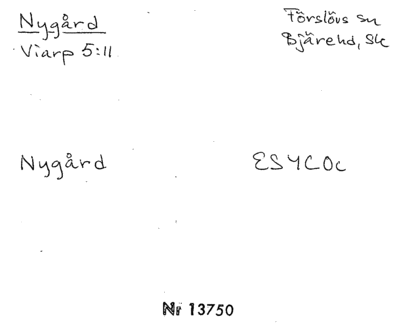 Nygård
Viarp 5:11
Förslövs sn
Bjärehd, Sk
Nygård
ESYCOc
Nr 13750